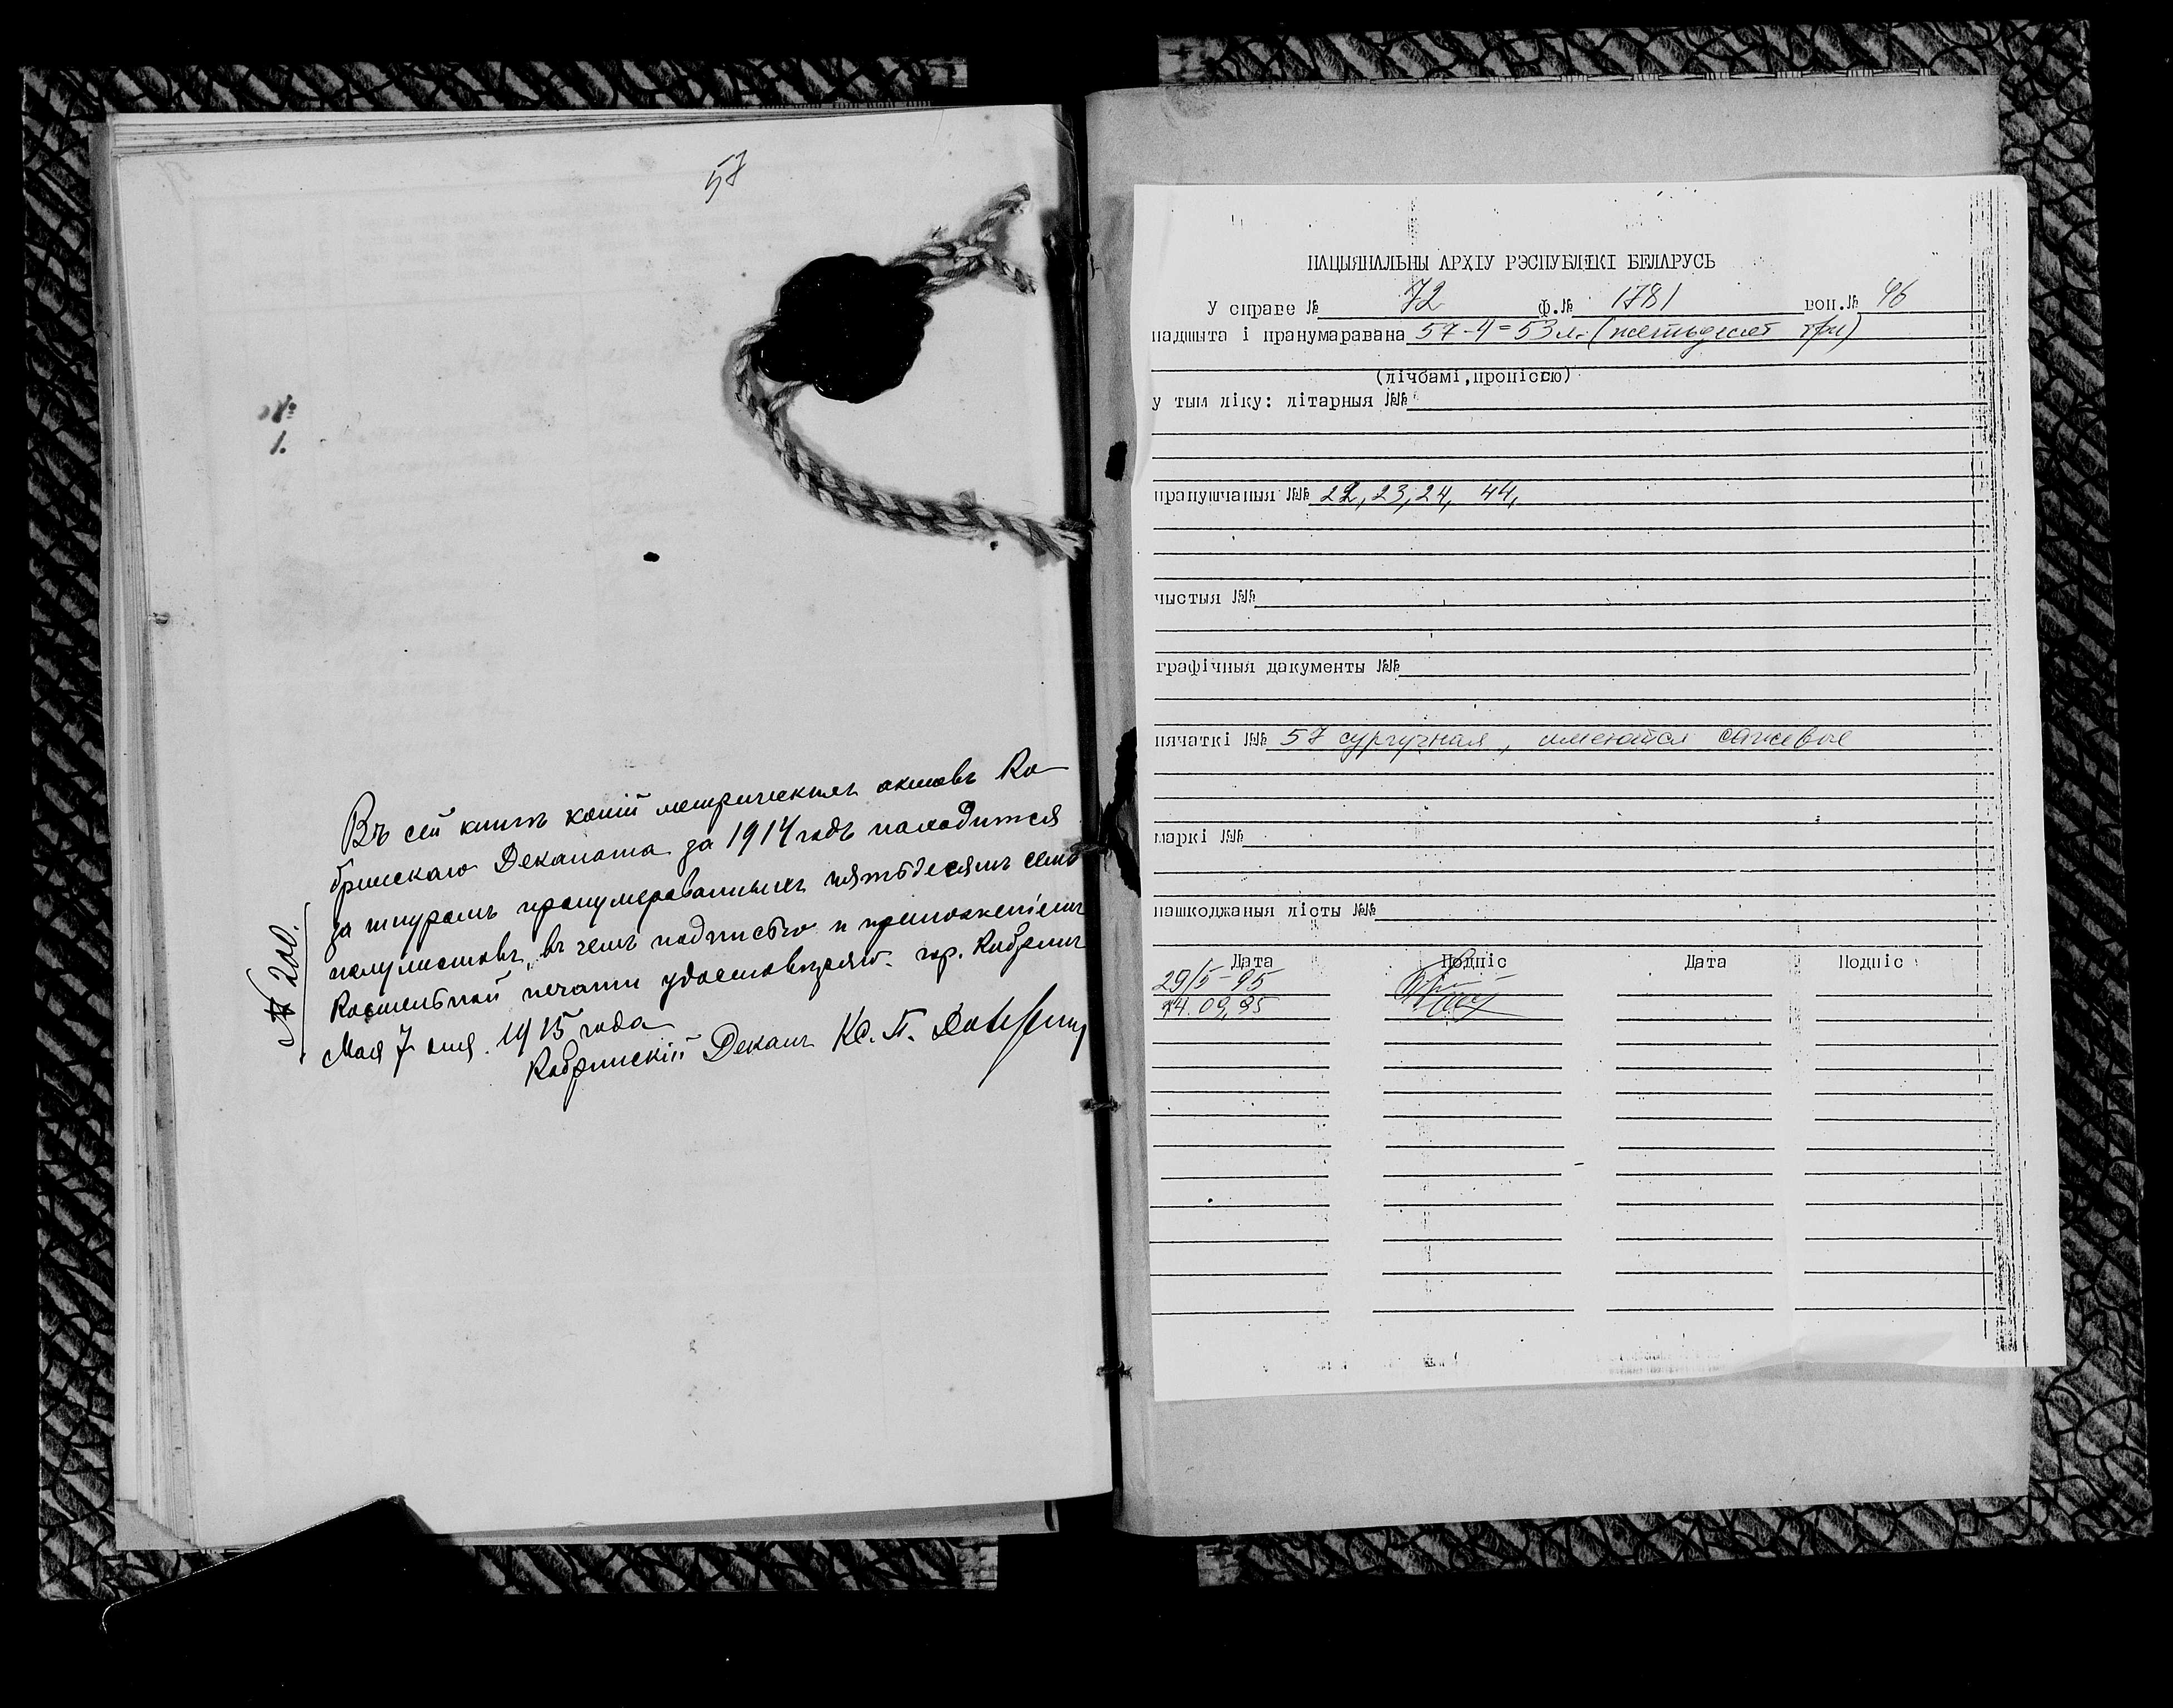 57
№
1.
Въ сей книгѣ копій метрическихъ актовъ Ко-
бринскаго Деканата за 1914 годъ находится
за шнуромъ пронумерованныхъ пятьдесятъ семь
полулистовъ, въ чемъ подписью и приложеніемъ
Костельной печати удостовѣряю. гор. Кобринъ
Мая 7 дня 1915 года
№ 200.
Кобринскій Деканъ Кс. П.
НАЦЫЯНАЛЬНЫ АРХІУ РЭСПУБЛІКІ БЕЛАРУСЬ
У справе № 72 ф.№ 1781 воп.№
падшыта і пранумаравана 57-4=53 л. (пятьдесят три)
(лічбамі, пропіссю)
у тым ліку: літарныя №№
прапушчаныя №№ 22, 23, 24, 44,
чыстыя №№
графічныя дакументы №№
пячаткі №№ 57 сургучная, имеются
маркі №№
пашкоджаныя лісты №№
Дата Подпіс Дата Подпіс
29/5-95
14.09.95